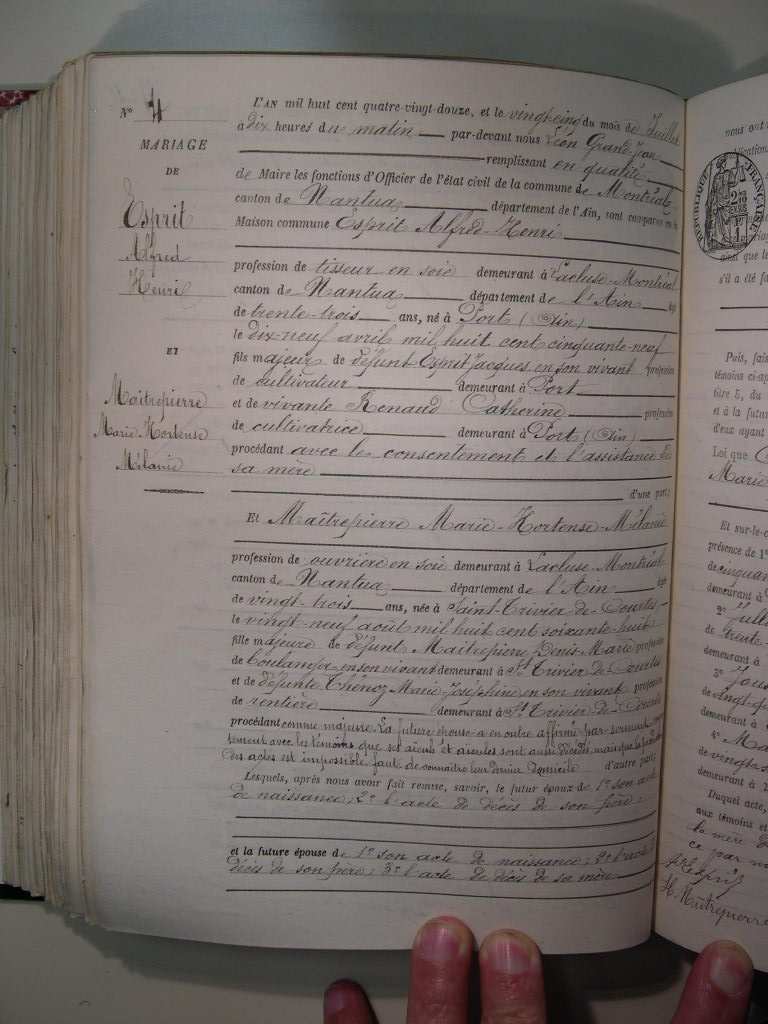 N° 4
MARIAGE
DE
Esprit
Alfred
Henri
ET
Maitrepierre
Marie-Hortense
Mélanie
L'AN mil huit cent quatre-vingt-douze, et le vingt-cinq du mois de Juillet
à dix heures du matin par-devant nous Léon Grand Jean
remplissant en qualité
de Maire les fonctions d'Officier de l'état civil de la commune de Montréal
canton de Nantua département de l'Ain, sont comparus en la
Maison commune Esprit Alfred-Henri
profession de tisseur en soie demeurant à Lacluse-Montréal
canton de Nantua département de l'Ain âgé
de trente-trois ans, né à Port (Ain)
le dix-neuf avril mil huit cent cinquante-neuf
fils majeur de défunt Esprit Jacques en son vivant profession
de cultivateur demeurant à Port
et de vivante Renaud Catherine profession
de cultivatrice demeurant à Port (Ain)
procédant avec le consentement et l'assistance de
sa mère
d'une part;
Et Maîtrepierre Marie-Hortense-Mélanie
profession de ouvrière en soie demeurant à Lacluse-Montréal
canton de Nantua département de l'Ain âgée
de vingt-trois ans, née à Saint-Trivier-de-Courtes
le vingt-neuf août mil huit cent soixante-huit
fille majeure de défunt Maitrepierre Denis-Marie profession
de boulanger en son vivant demeurant à St Trivier de Courtes
et de défunte Thénoz Marie Joséphine en son vivant profession
de rentière demeurant à St Trivier de Courtes
procédant comme majeure. La future épouse a en outre affirmé par serment
avec les témoins que ses aïeuls et aïeules sont aussi décédés, mais que la
des actes est impossible faute de connaître leur dernier domicile d'autre part;
Lesquels, après nous avoir fait remise, savoir, le futur époux de 1° son acte
de naissance; 2° l'acte de décès de son père;
et la future épouse de 1° son acte de naissance; 2° l'acte de
décès de son père; 3° l'acte de décès de sa mère
nous ont
RÉPUBLIQUE FRANÇAISE
ainsi que le
s'il a été fa
Puis, fais
témoins ci-ap
titre 5, du
et à la futur
d'eux ayant
Loi que
Marie
Et sur-le-c
présence de 1°
de cinquan
demeurant à
2°
de trente-
demeurant à
3°
de vingt-
demeurant à
4° Ma
de vingt-s
demeurant à
Duquel acte,
aux témoins et
la mère
ce par
A Esprit
H. Maitrepierre